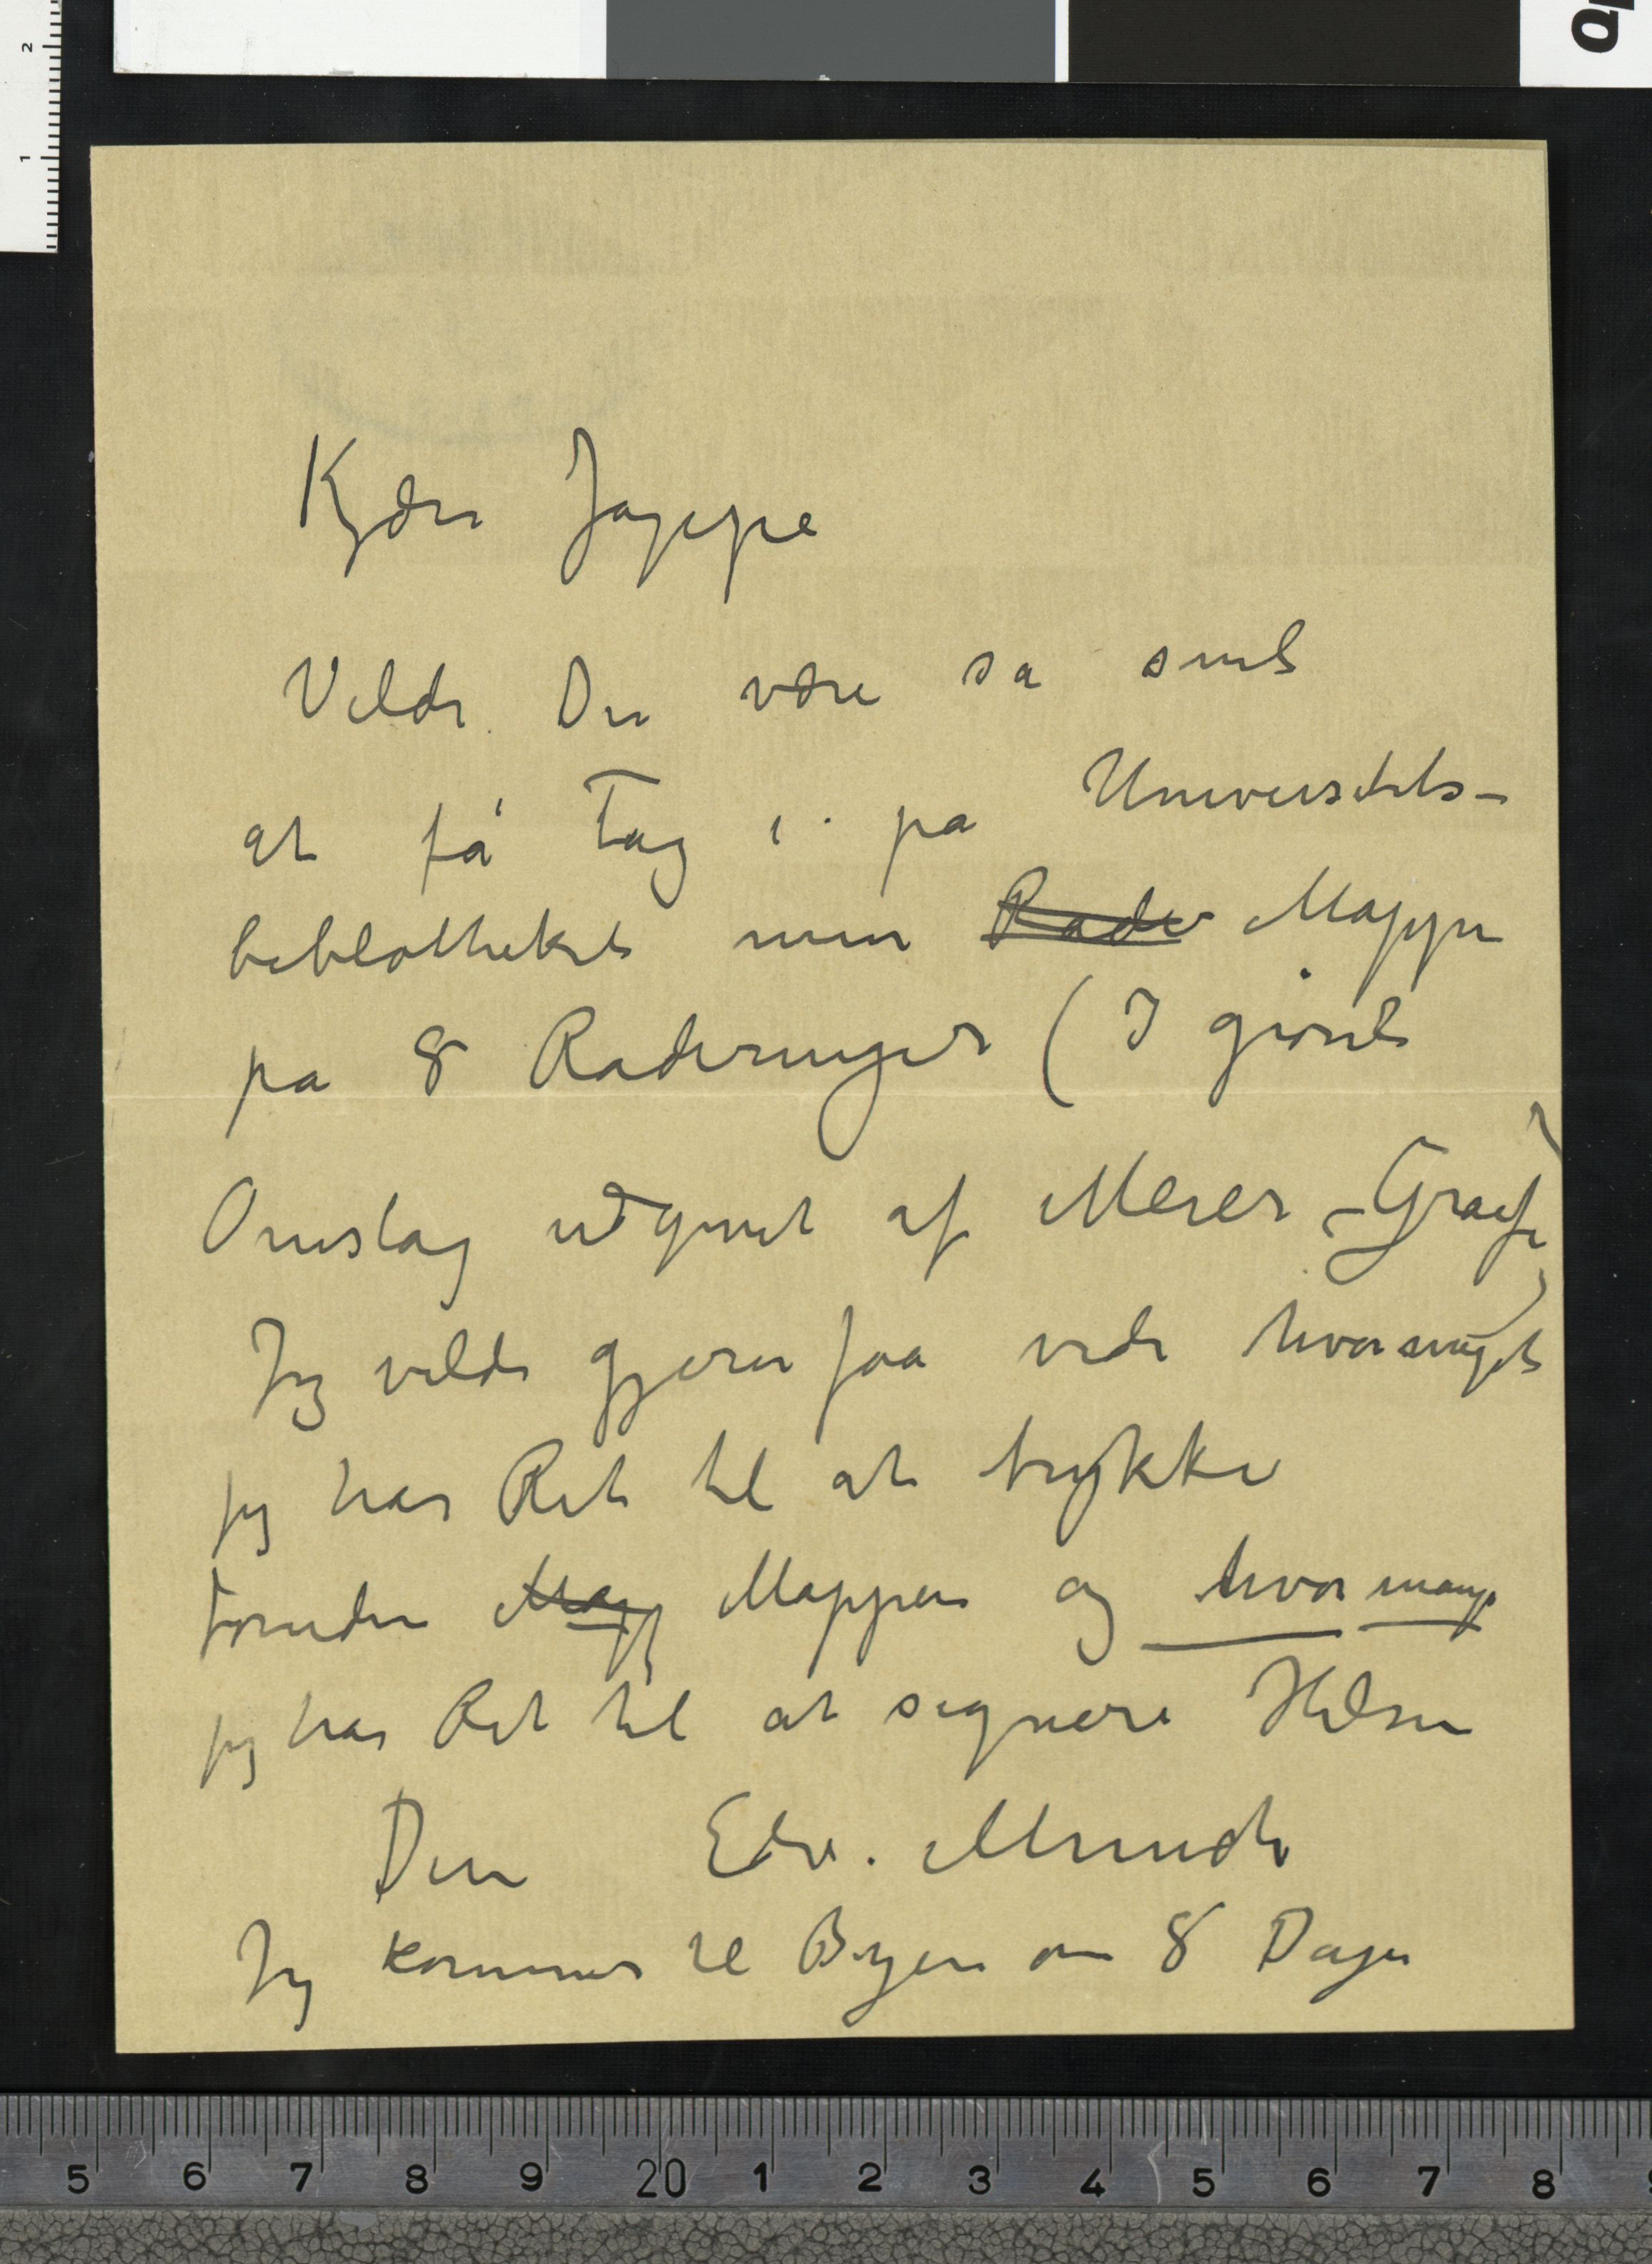 Kjære Jappe
Vilde Du være sa snil
at få Tag i pa Universitets-
bibliotheket min Rade Mappe
pa 8 Raderinger (I grönt
Omslag udgivet af Meier-Graefe)
Jeg vilde gjerne faa vide hvormeget
jeg har Ret til at trykke
foruden Mapp Mappen og hvor mange
jeg har Ret til at signere Hilsen
Din Edv. Munch
Jeg kommer til Byen om 8 Dager
2
1
5 6 7 8 9 20 1 2 3 4 5 6 7 8